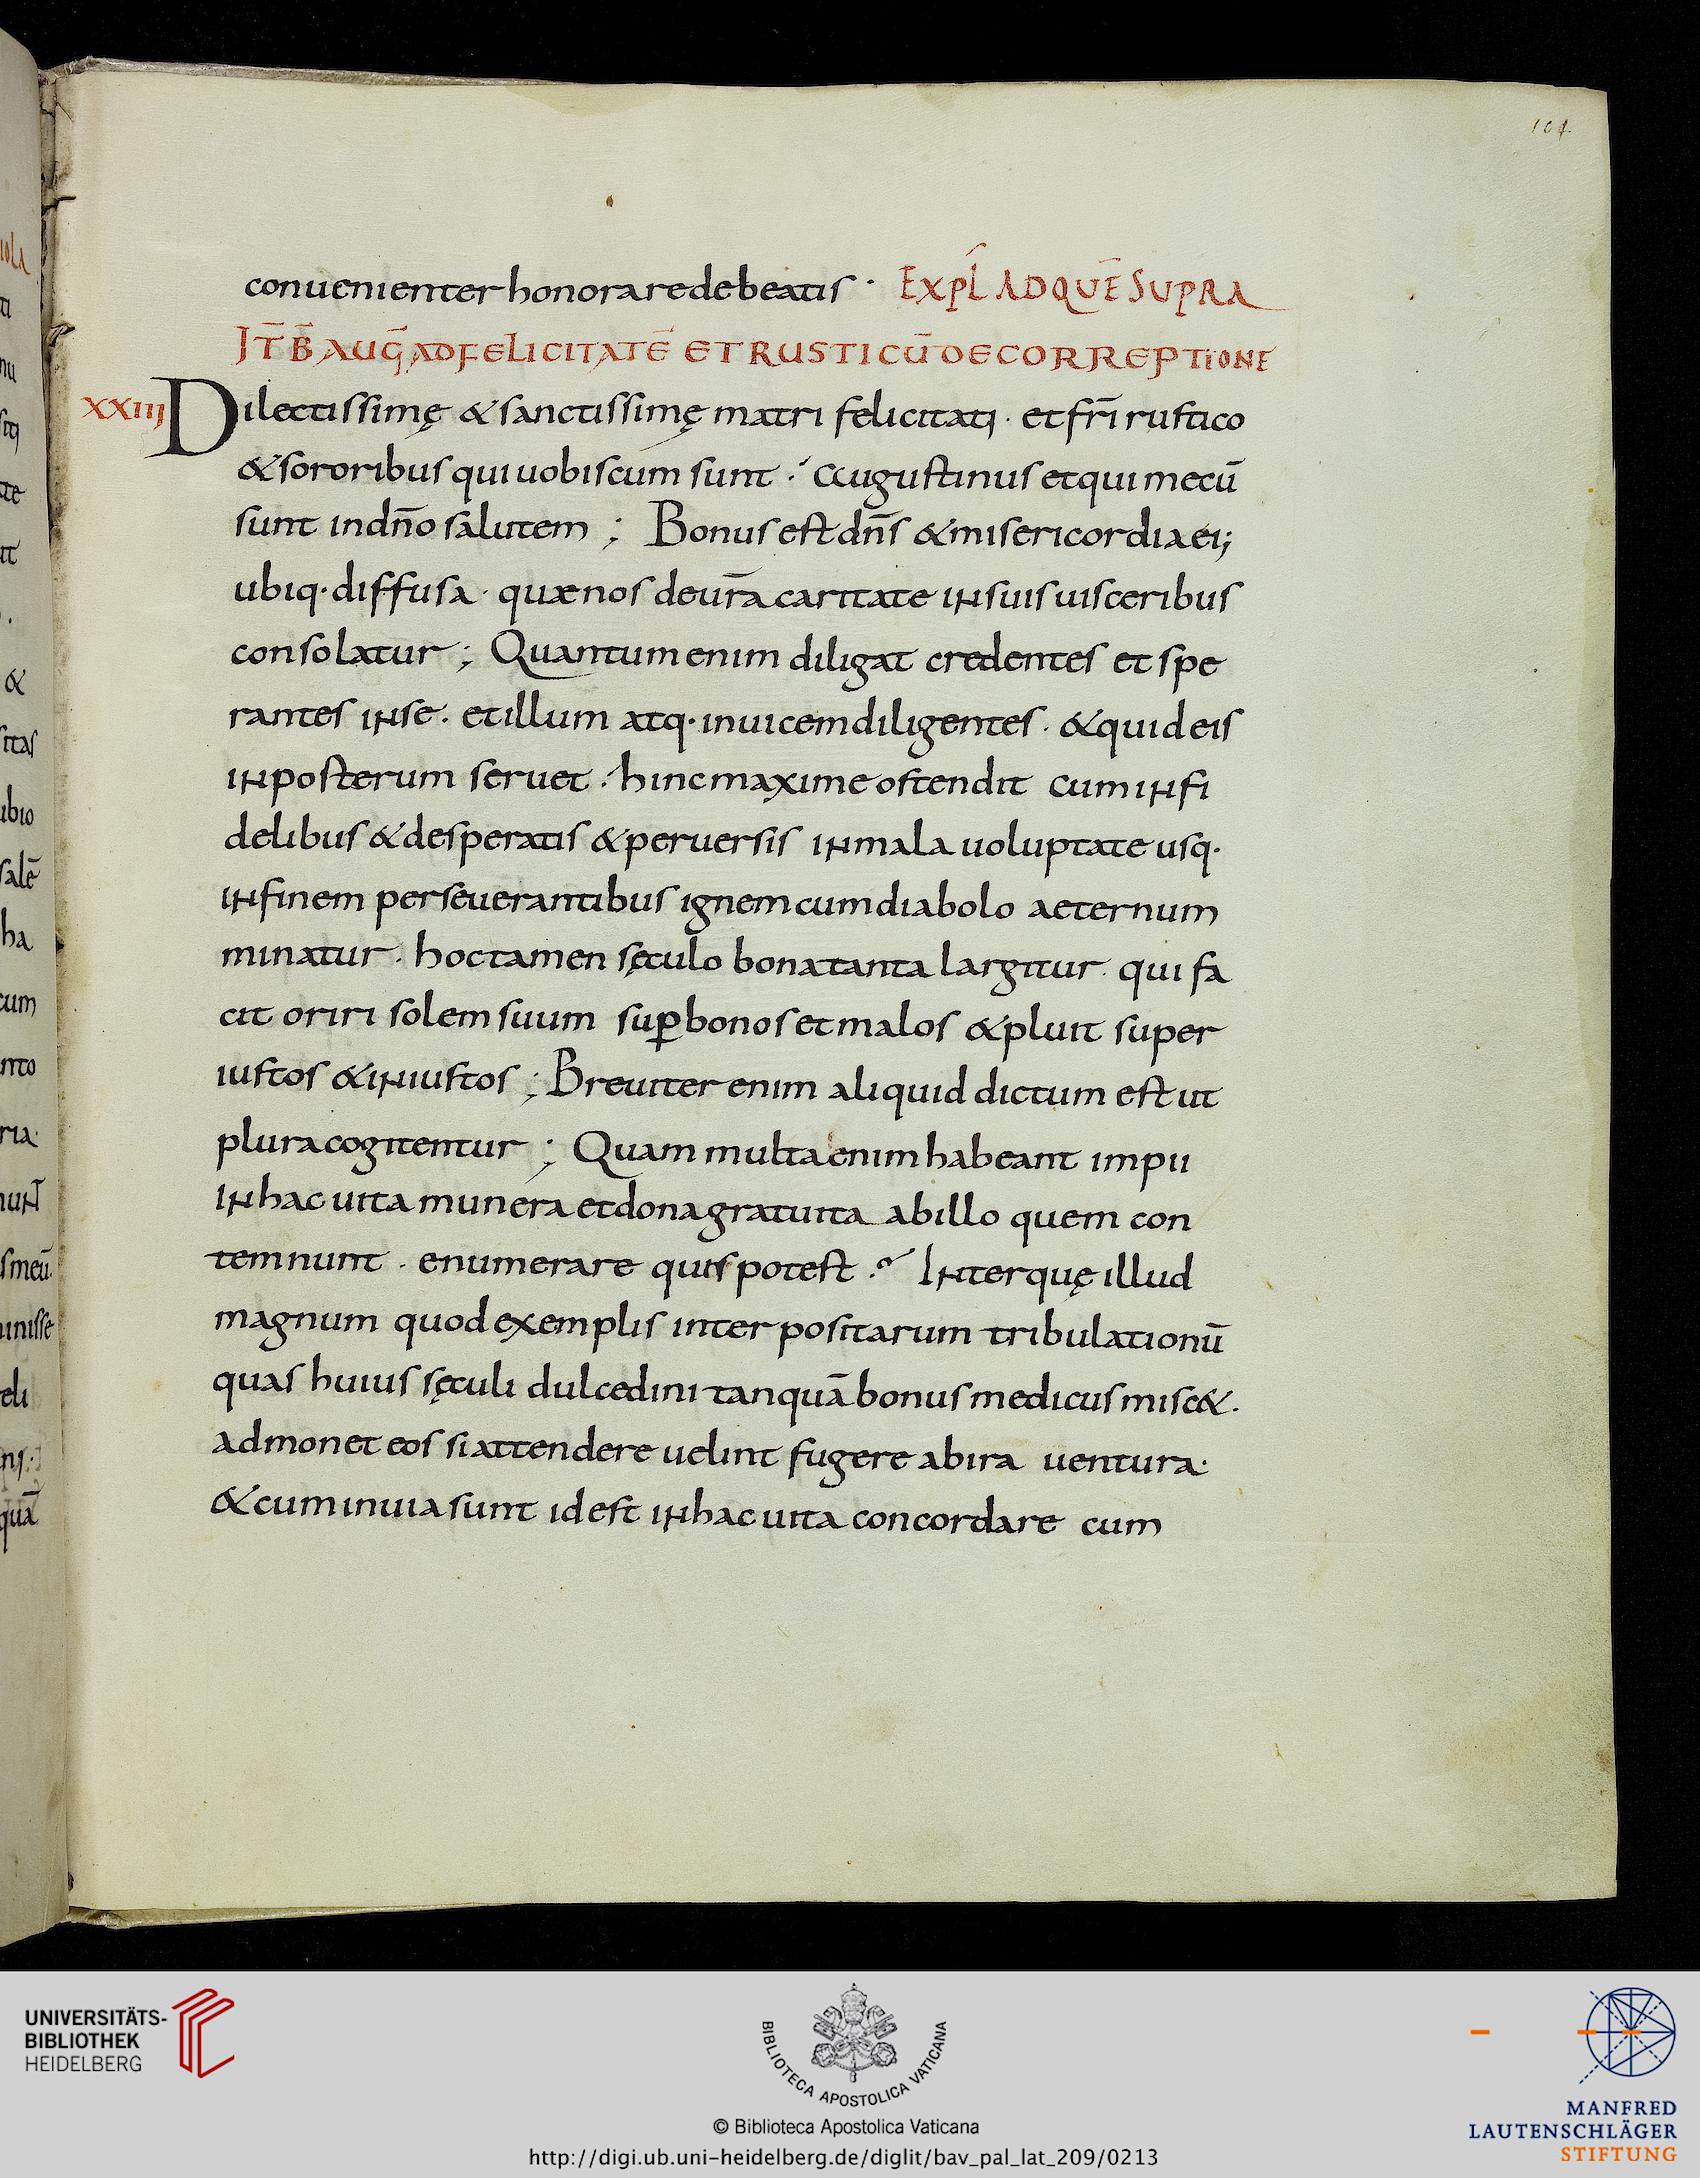 104.
conuenienter honorare debeatis · EXPL̄ AD QUĒ SUPRA
IT̄ B̄ AUḠ AD FELICITATĒ ET RUSTICŪ DE CORREPTIONE
XXIII Dilectissimę & sanctissimę matri felicitati · et fr̄i rustico
& sororibus qui uobiscum sunt · Augustinus et qui mecū
sunt in dn̄o salutem ; Bonus est dn̄s & misericordia ei;
ubiq· diffusa · quae nos de ur̄a caritate in suis uisceribus
consolatur ; Quantum enim diligat credentes et spe
rantes in se · et illum atq· inuicem diligentes · & quid eis
in posterum seruet · hinc maxime ostendit cum infi
delibus & desperatis & peruersis in mala uoluptate usq·
in finem perseuerantibus ignem cum diabolo aeternum
minatur · hoc tamen sęculo bona tanta largitur · qui fa
cit oriri solem suum suꝑ bonos et malos & pluit super
iustos & iniustos ; Breuiter enim aliquid dictum est ut
plura cogitentur ; Quam multa enim habeant impii
in hac uita munera et dona gratuita ab illo quem con
temnunt · enumerare quis potest ? Inter quę illud
magnum quod exemplis inter positarum tribulationū
quas huius sęculi dulcedini tanquā bonus medicus misc&·
admonet eos si attendere uelint fugere ab ira uentura·
& cum in uia sunt id est in hac uita concordare cum
UNIVERSITÄTS-
BIBLIOTHEK
HEIDELBERG
BIBLIOTECA APOSTOLICA VATICANA
© Biblioteca Apostolica Vaticana
http://digi.ub.uni-heidelberg.de/diglit/bav_pal_lat_209/0213
MANFRED
LAUTENSCHLÄGER
STIFTUNG